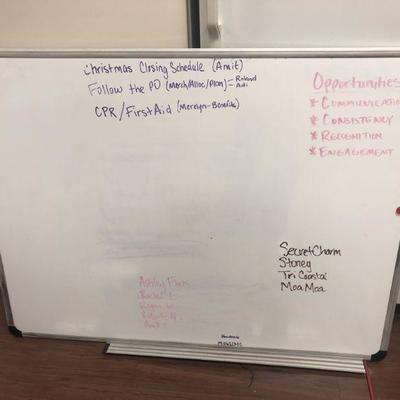 Christmas Closing Schedule (Amit)
Follow the PO (Merch/Alloc/Plan) - Roland
Adi
CPR/First Aid (Merelyn-Benefits)
Opportunities
* COMMUNICATIO
* CONSISTENCY
* RECOGNITION
* ENGAGEMENT
Secret Charm
Stoney
Tri Coastal
Moa Moa
Ashley